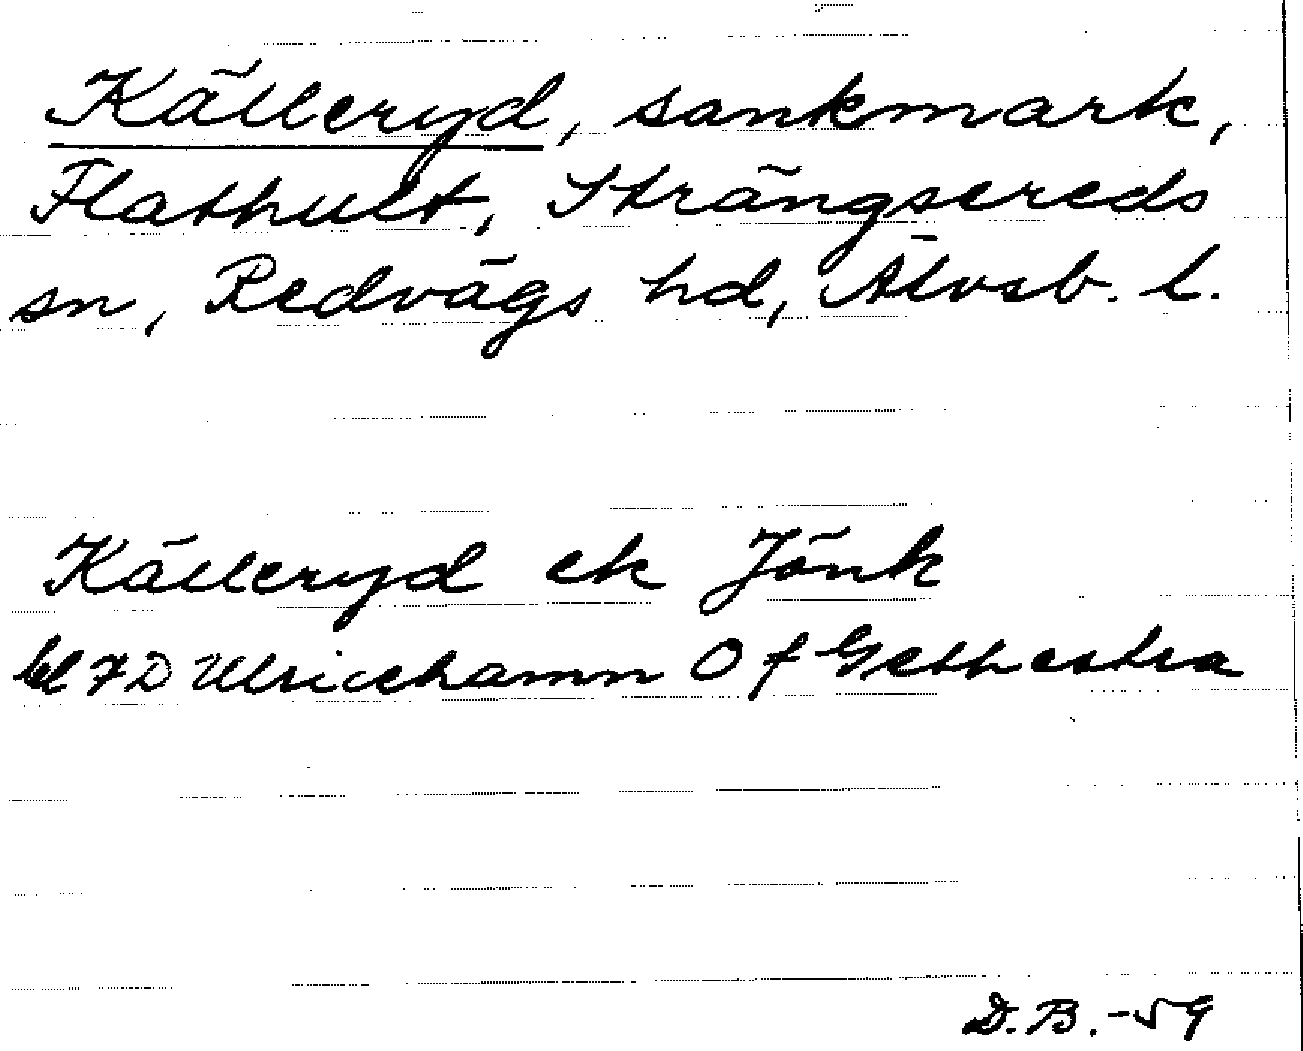 Källeryd, sankmark,
Flathult, Strängsereds
sn, Redvägs hd, Älvsb. l.
Källeryd ek Jönk
bl 7D Ulricehamn Of Gethestra
D.B.-59